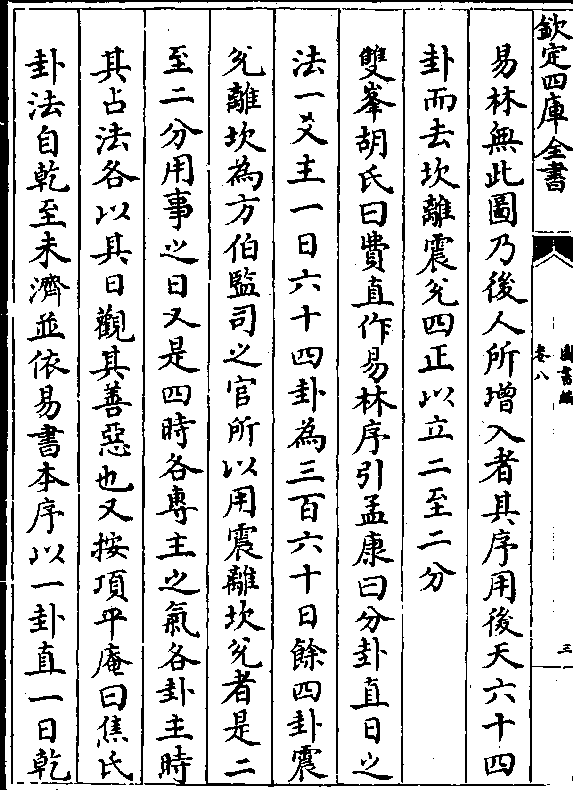 欽定四庫全書
圖書編
卷八
三
易林無此圖乃後人所增入者其序用後天六十四
卦而去坎離震兊四正以立二至二分
雙峯胡氏曰費直作易林序引孟康曰分卦直日之
法一爻主一日六十四卦為三百六十日餘四卦震
兊離坎為方伯監司之官所以用震離坎兊者是二
至二分用事之日又是四時各專主之氣各卦主時
其占法各以其日觀其善惡也又按項平庵曰焦氏
卦法自乾至未濟並依易書本序以一卦直一日乾